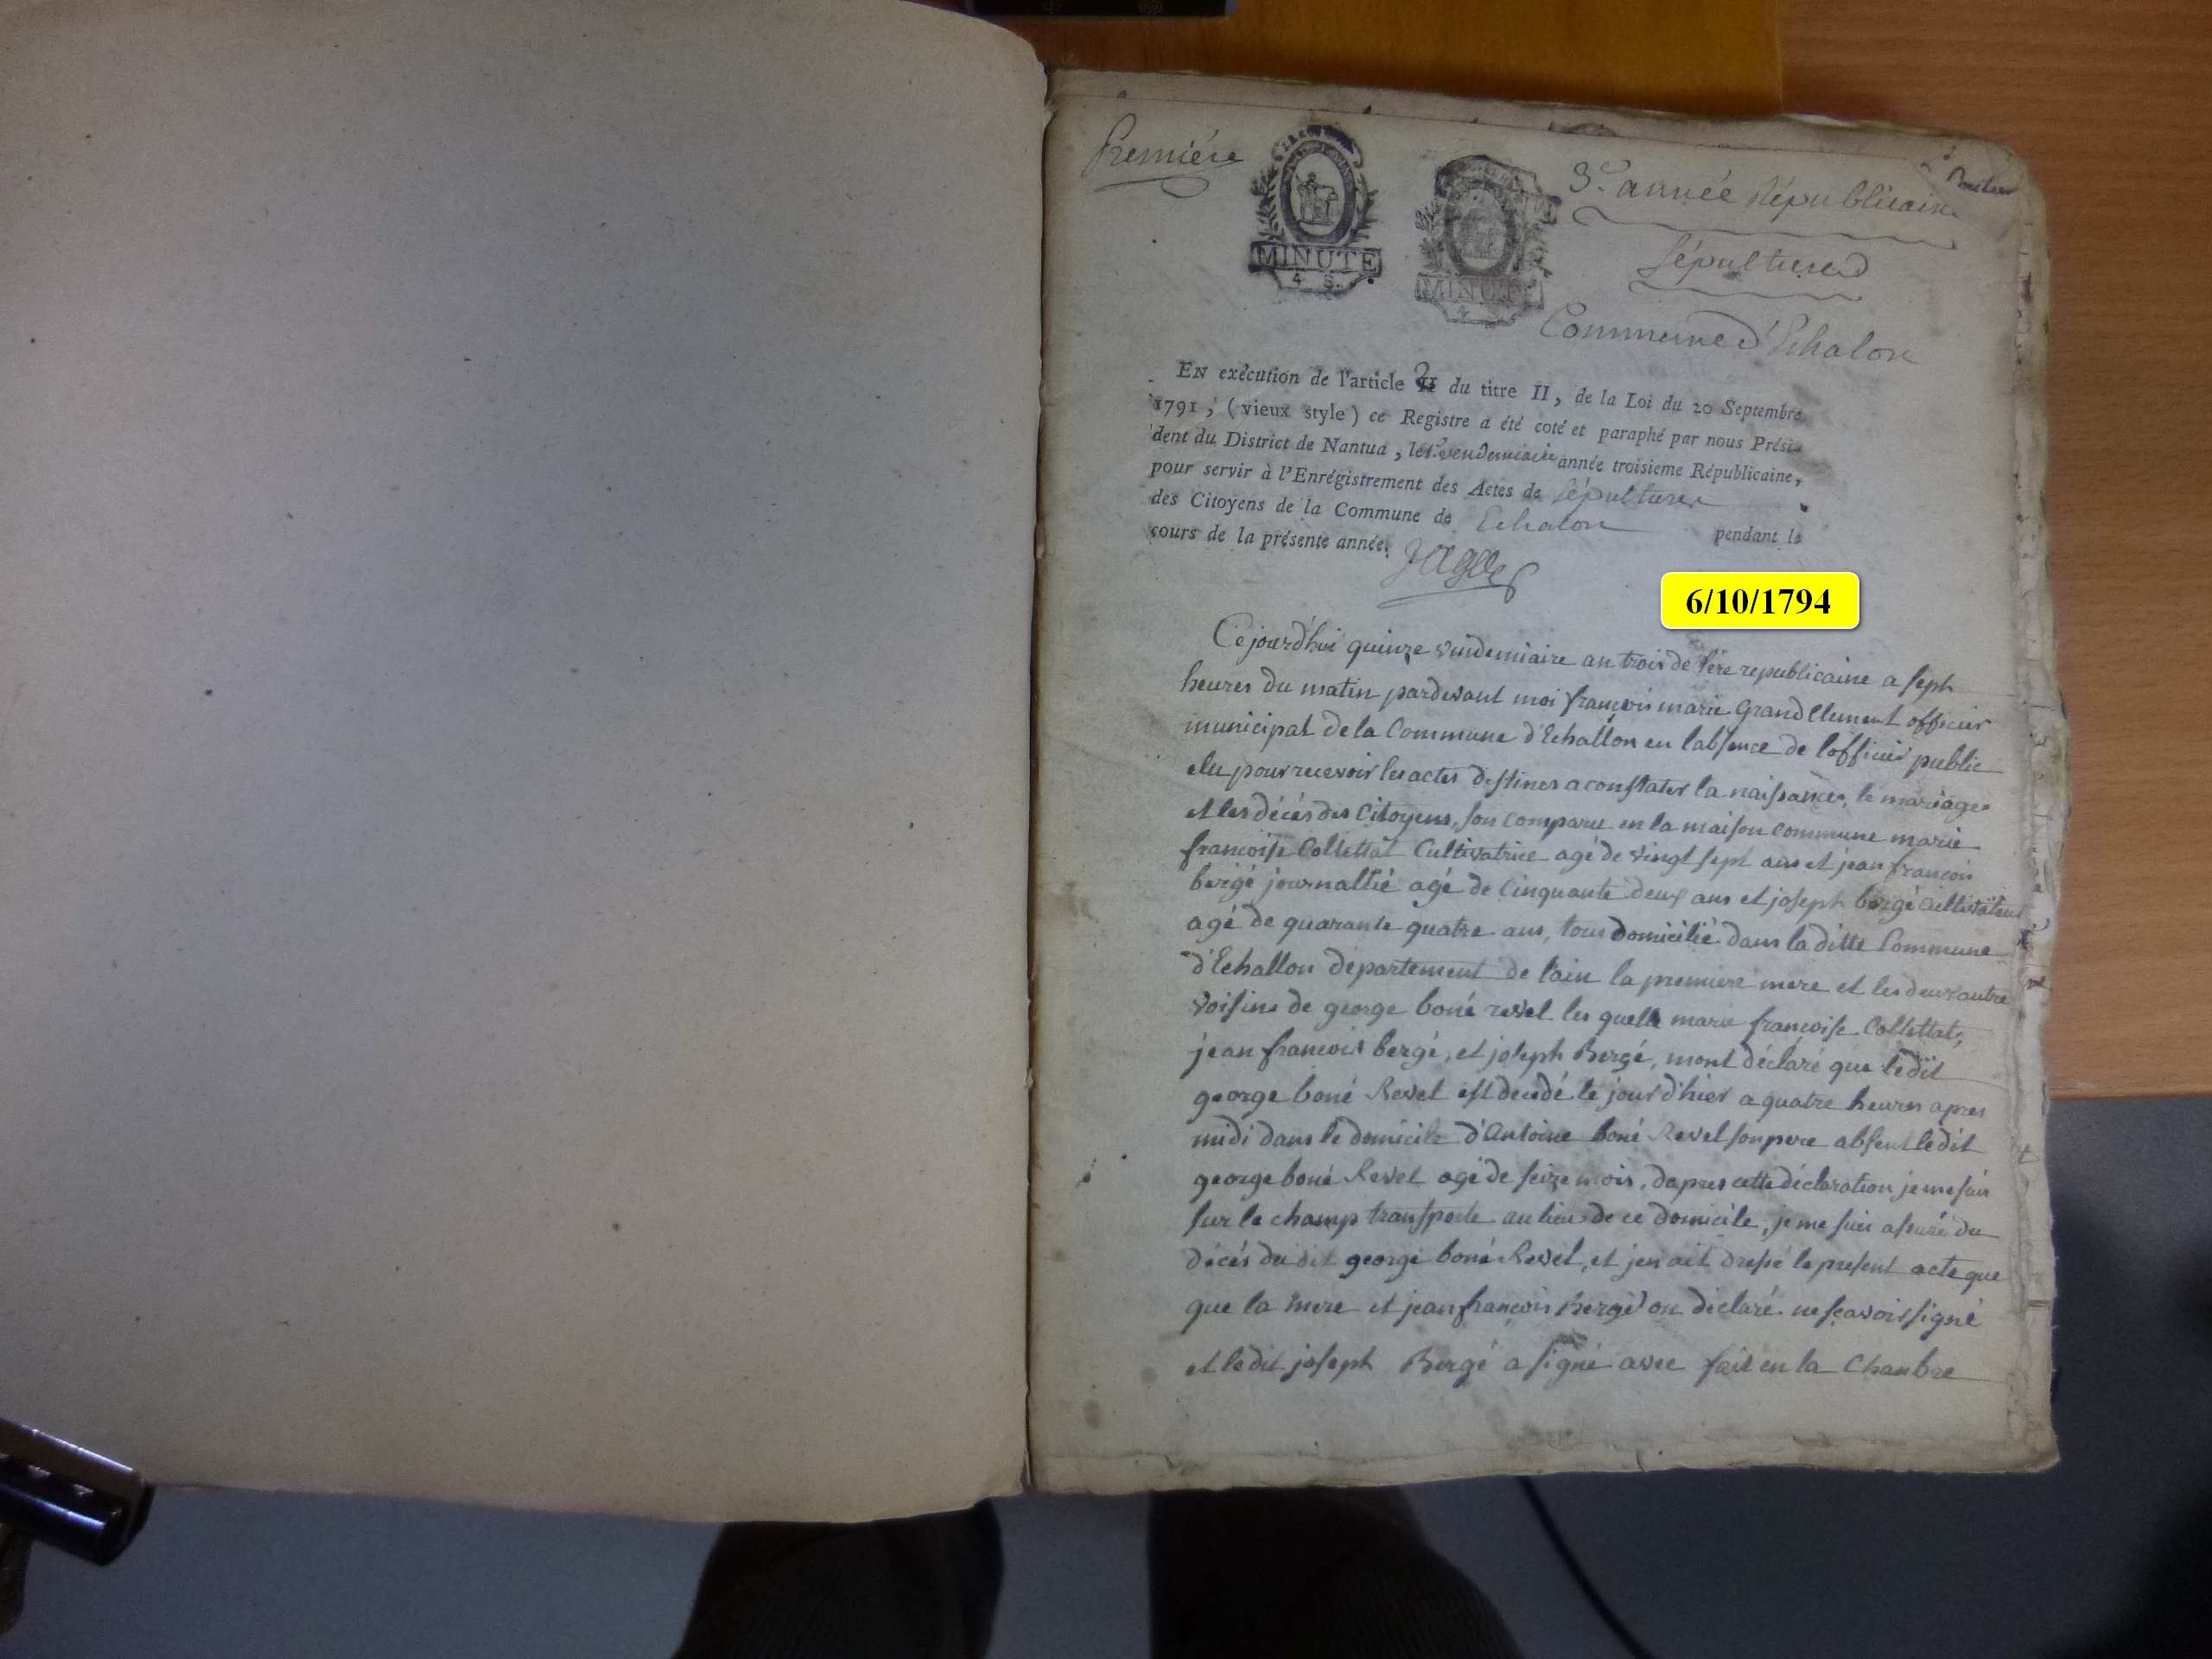 Premiére
MINUTE
4 S.
MINUTE
3e année Républicaine
Sépultures
Commune d'Echalon
EN exécution de l'article 2 du titre II, de la Loi du 20 Septembre
1791, (vieux style) ce Registre a été coté et paraphé par nous Prési-
dent du District de Nantua, le 1er vendemiaire année troisieme Républicaine,
pour servir à l'Enrégistrement des Actes de Sépultures
des Citoyens de la Commune de Echalon pendant le
cours de la présente année.
6/10/1794
Cejourd'hui quinze vindemiaire an trois de l'ére republicaine a sept
heures du matin pardevant moi françois marie Grandclement officier
municipal de la Commune d'Echallon en l'absence de lofficier public
elu pour recevoir les actes destines a constater la naissances, le mariages
et les décés des Citoyens, son comparu en la maison commune marie
francoise Collettat Cultivatrice agé de vingt sept ans et jean francois
bergé journallié agé de cinquante deux ans et joseph bergé cultivateur
agé de quarante quatre ans, tous domicilié dans la ditte Commune
d'Echallon departement de l'ain la premiere mere et les deux autre
voisins de george boné revel les quelle marie francoise Collettat,
jean francois bergé, et joseph Bergé, mont déclaré que ledit
george boné Revel est decedé le jour d'hier a quatre heures apres
midi dans le domicile d'Antoine boné Revel son pere absent ledit
george boné Revel agé de seize mois, dapres cette déclaration je me suis
sur le champ transporte au lieu de ce domicile, je me suis assuré du
décés du dit george boné Revel, et jen ait dressé le present acte que
que la mere et jean françois Bergé on déclaré ne sçavoir signé
et ledit joseph Bergé a signé avec fait en la Chambre